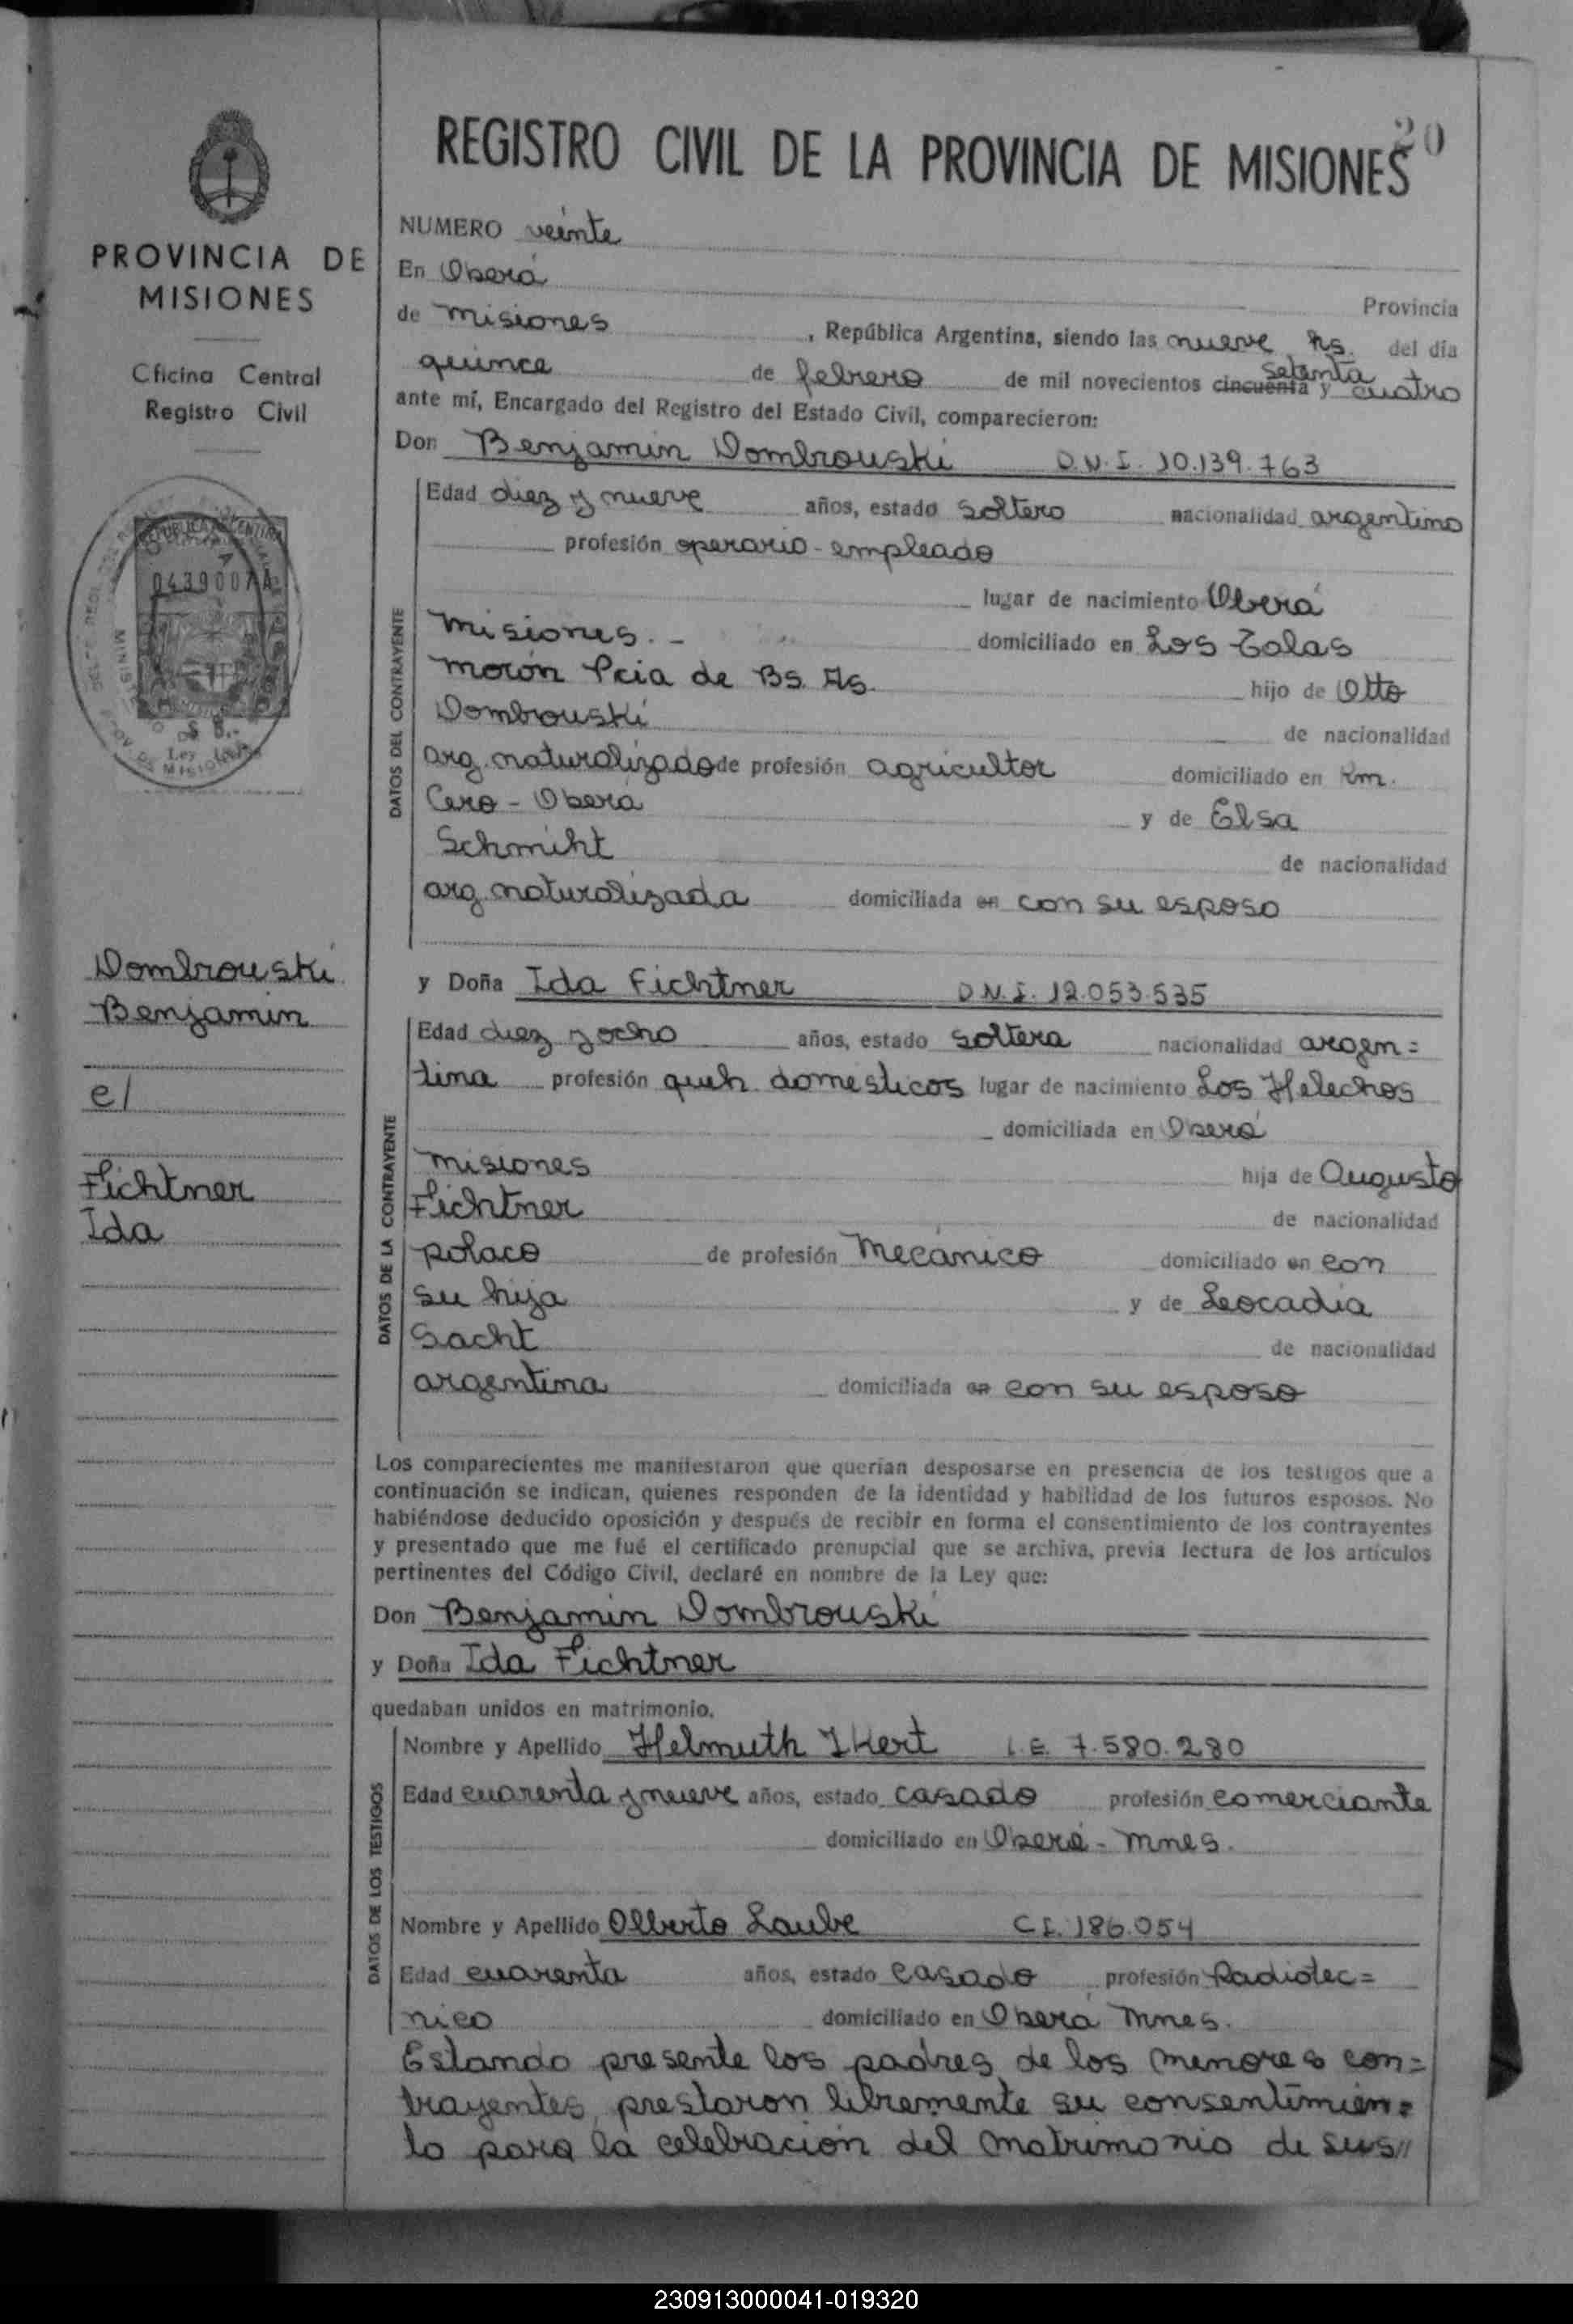 20
REGISTRO CIVIL DE LA PROVINCIA DE MISIONES
PROVINCIA DE
MISIONES
Oficina Central
Registro Civil
REPUBLICA ARGENTINA
0439007A
$ 8.-
Ley
Dombrouski
Benjamin
c/
Fichtner
Ida
NUMERO veinte
En Oberá
Provincia
de Misiones , República Argentina, siendo las nueve hs. del día
quince de febrero de mil novecientos cincuenta setenta y cuatro
ante mí, Encargado del Registro del Estado Civil, comparecieron:
Don Benjamin Dombrouski D.N.I. 10.139.763
DATOS DEL CONTRAYENTE
Edad diez y nueve años, estado soltero nacionalidad argentino
profesión operario - empleado
lugar de nacimiento Oberá
Misiones. - domiciliado en Los Talas
Morón Pcia de Bs. As. hijo de Otto
Dombrouski de nacionalidad
arg. naturalizado de profesión agricultor domiciliado en km.
Cero - Oberá y de Elsa
Schmiht de nacionalidad
arg. naturalizada domiciliada en con su esposo
y Doña Ida Fichtner D.N.I. 12.053.535
DATOS DE LA CONTRAYENTE
Edad diez y ocho años, estado soltera nacionalidad argen=
tina profesión queh. domesticos lugar de nacimiento Los Helechos
domiciliada en Oberá
Misiones hija de Augusto
Fichtner de nacionalidad
polaco de profesión Mecánico domiciliado en con
su hija y de Leocadia
Sacht de nacionalidad
argentina domiciliada en con su esposo
Los comparecientes me manifestaron que querían desposarse en presencia de los testigos que a
continuación se indican, quienes responden de la identidad y habilidad de los futuros esposos. No
habiéndose deducido oposición y después de recibir en forma el consentimiento de los contrayentes
y presentado que me fué el certificado prenupcial que se archiva, previa lectura de los artículos
pertinentes del Código Civil, declaré en nombre de la Ley que:
Don Benjamin Dombrouski
y Doña Ida Fichtner
quedaban unidos en matrimonio.
DATOS DE LOS TESTIGOS
Nombre y Apellido Helmuth Ikert L.E. 7.580.280
Edad cuarenta y nueve años, estado casado profesión comerciante
domiciliado en Oberá - Mnes.
Nombre y Apellido Alberto Laube C.I. 186.054
Edad cuarenta años, estado casado profesión Radiotec=
nico domiciliado en Oberá Mnes.
Estando presente los padres de los menores con=
trayentes, prestaron libremente su consentimien=
to para la celebración del matrimonio de sus//
230913000041-019320